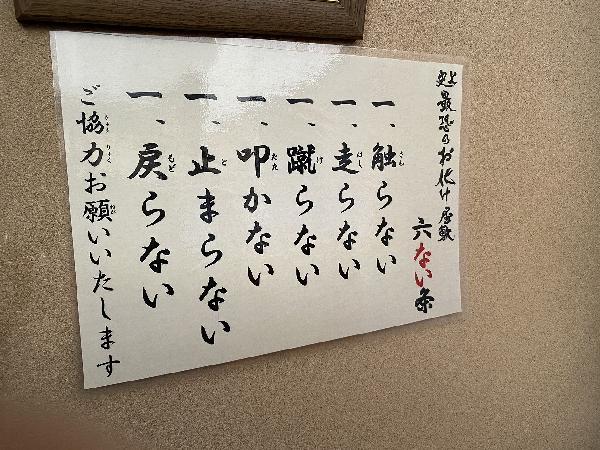 史上最恐のお化け屋敷
六ない条
一、触らない
一、走らない
一、蹴らない
一、叩かない
一、止まらない
一、戻らない
ご協力お願いいたします